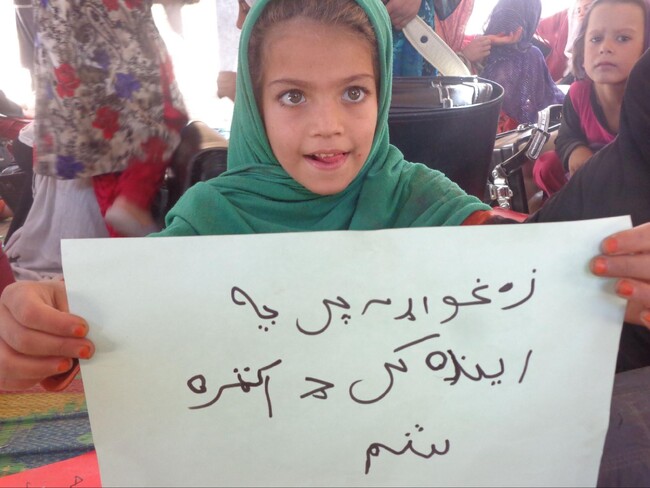 زه غواړم چی په
اینده کی ډاکتره
شم